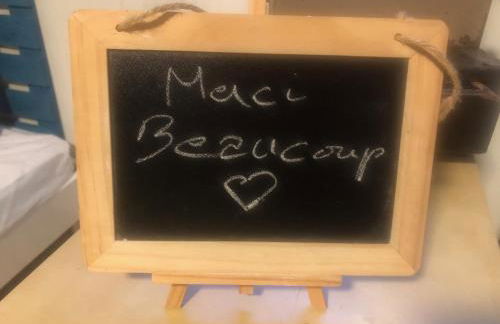 Merci
Beaucoup
♡